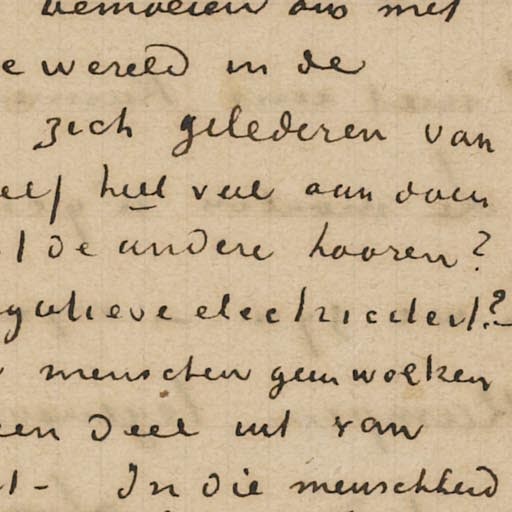 bemoeien ons met
e wereld in de
zich gelederen van
elf heel veel aan doen
l de andere hooren?
gatieve electriciteit?-
menschen geen wolken
een deel uit van
t - In die menschheid